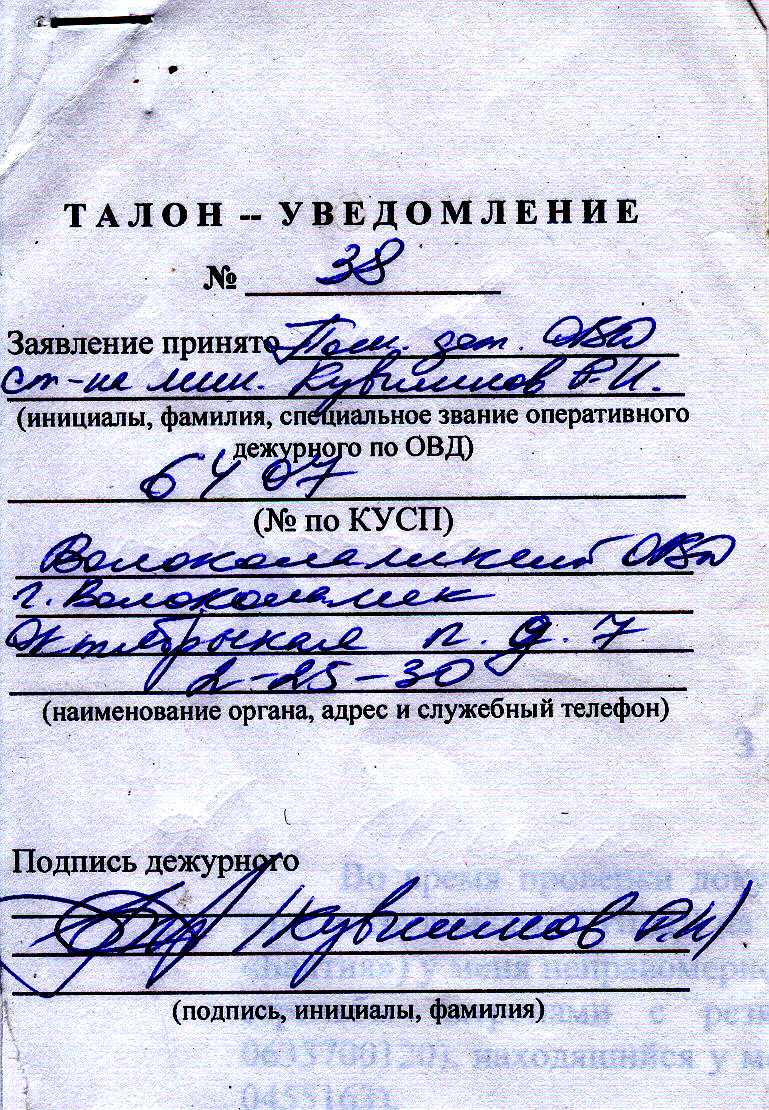 ТАЛОН -- УВЕДОМЛЕНИЕ
№ 38
Заявление принято Пом. деж. ОВД
ст-на мил. Кувшинов Р.И.
(инициалы, фамилия, специальное звание оперативного
дежурного по ОВД)
6407
(№ по КУСП)
Волоколамский ОВД
г. Волоколамск
Октябрьская п. д. 7
2-25-30
(наименование органа, адрес и служебный телефон)
З
Подпись дежурного
Во время проверки доку
/Кувшинов Р.И/
у меня неправомерно
(подпись, инициалы, фамилия)
ами с рези
0633700120), находящийся у м
0455163).